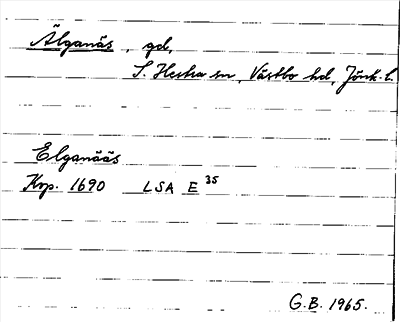 Älganäs, gd,
S. Hestra sn, Västbo hd, Jönk. l.
Elganääs
Krp. 1690 LSA E 35
G.B. 1965.